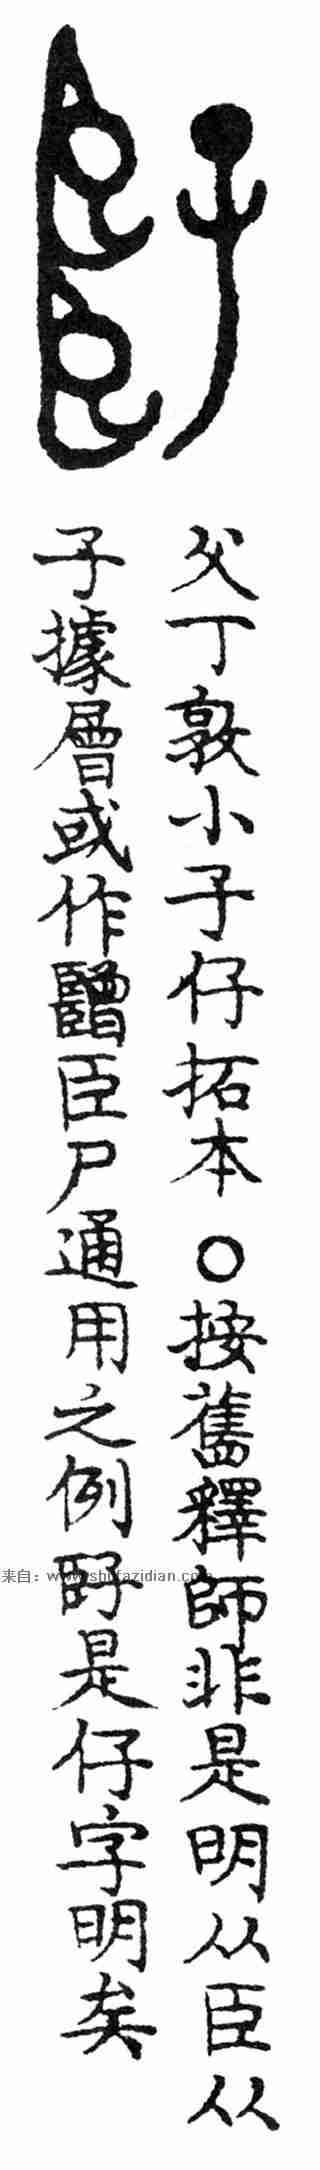 父丁敦小子仔拓本○按舊釋師非是明从臣从
子據層或作臣尸通用之例是仔字明矣
来自：www.shufazidian.com